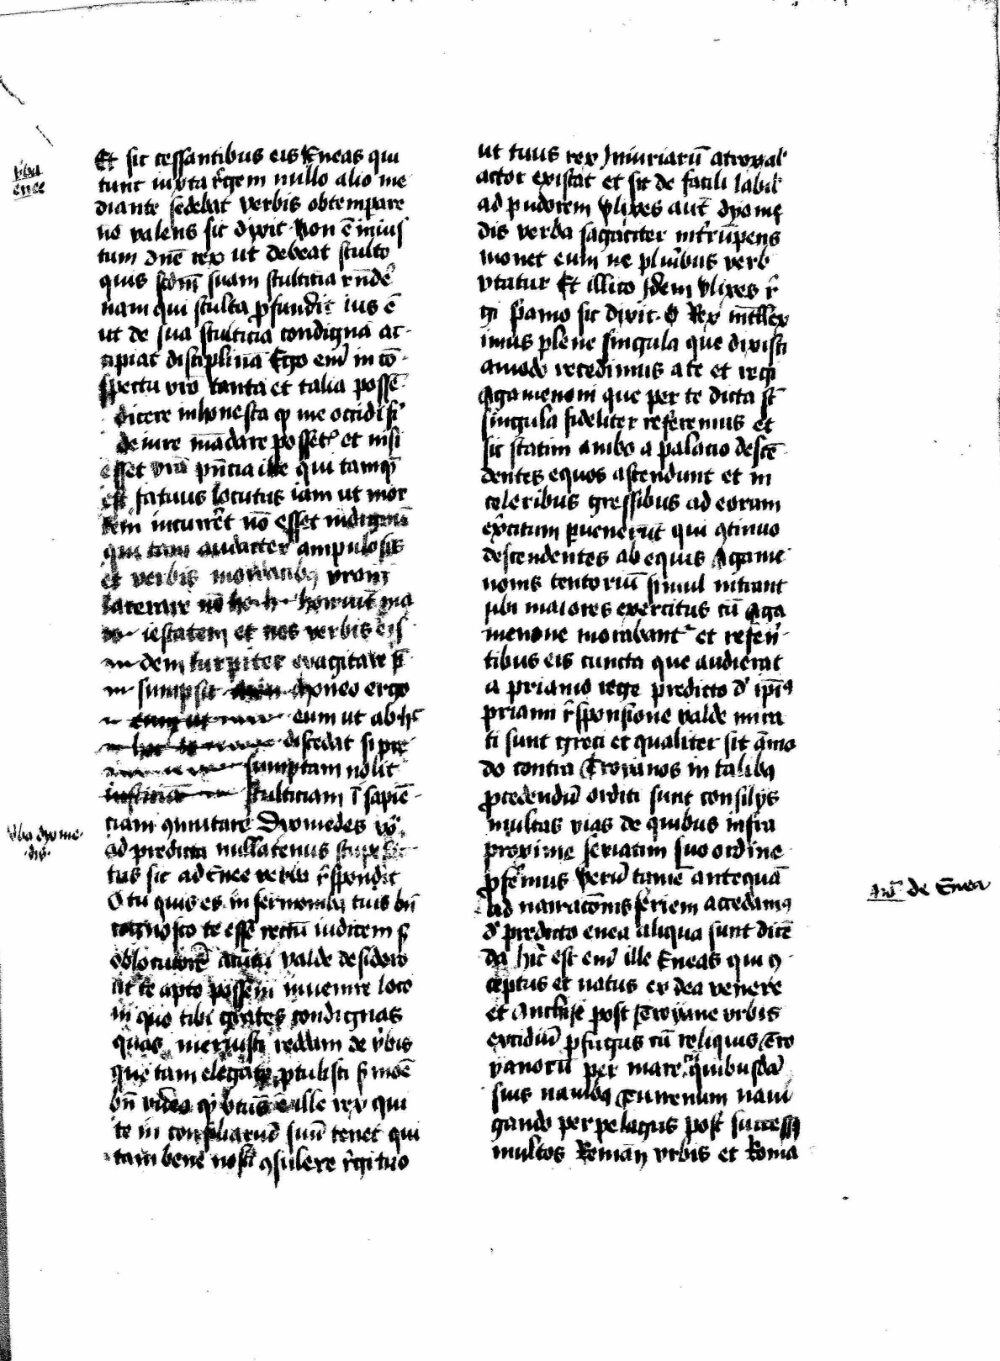 v̄ba
enee
Et sic cessantibus eis Eneas qui
tunc iuxta r̄gem nullo alio me
diante sedebat verbis obtempare
nō valens sic dixit Non ē inius
tum dn̄e rex ut debeat stulto
quis scd̄m suam stulticiā rn̄de
nam qui stulta ꝓfundit ius ē
ut de sua stulticia condignā ac
cipiat disciplinā Ego em̄ in cō
spectu vr̄o tanta et talia possē
dicere inhonesta qp̄ me occidi
de iure mādare possetꝭ et nisi
esset vr̄a pn̄cia ille qui tamqȝ
est fatuus locutus iam ut mor
tem incurrēt nō esset indignū
qui tam audacter ampulosis
et verbis
lacerare nō
iestatem et nos verbis eis
dem turpiter exagitare
sumpsit moneo ergo
eum ut ab
discedat si pre
sumptam nolit
stulticiam ī sapiē
ciam qmutare Dyomedes v̊
v̄ba dyome
dis
ad predicta nullatenus stupefac
tus sic ad Enee verba r̄spondit
O tu quis es in sermonibȝ tuis bn̄
cognosco te esse rectū iudicem
valde desidero
ut te apto possem invenire loco
in quo tibi grates condignas
quas meruisti reddam de v̄bis
que tam elegāter ꝓtulisti
bn̄ video ille rex qui
te in consiliariū suū tenet qui
tam bene nosti qsulere r̄gi tuo
ut tuus rex Iniuriarū
actor existat et sic de facili labit
ad pudorem Ulixes aut̄ dyome
dis verba sagaciter intrūpens
monet eum ne plurībus verb
utatur Et illico Idem Ulixes r̄
gi p̄amo sic dixit O Rex intll̄ex
imus plene singula que dixisti
amodo recedimus a te et regi
Agamenoni que per te dicta st̄
singula fideliter referemus et
sic statim ambo a palacio descē
dentes equos ascendunt et in
celeribus gressibus ad eorum
ex̄citum pvenerūt qui qtinuo
descendentes ab equis Agame
nonis tentoriū simul intrant
ubi maiores exercitus cū Aga
menone morabantꝭ et referen̄
tibus eis cuncta que audierāt
a priamo rege predicto d̄ ip̄iꝰ
priami r̄sponsione valde mira
ti sunt greci et qualiter sit amo
do contra Troyanos in talibȝ
ꝓcedendū orditi sunt consilijs
multas vias de quibus infra
proxime seriatim suo ordine
ꝓferemus Verū tamē antequā
ad narracōnis seriem accedamꝰ
an̄ de Enea
d̄ predicto enea aliqua sunt dicē
da hic est em̄ ille Eneas qui q
ceptus et natus ex dea venere
et Anchise post Troyane urbis
excidiū ꝓfugus cū reliquis Tro
yanorū per mare quibusdā
suis navibȝ Turrenum navi
gando per pelagus post success
multos Romāꝝ urbis et Roma